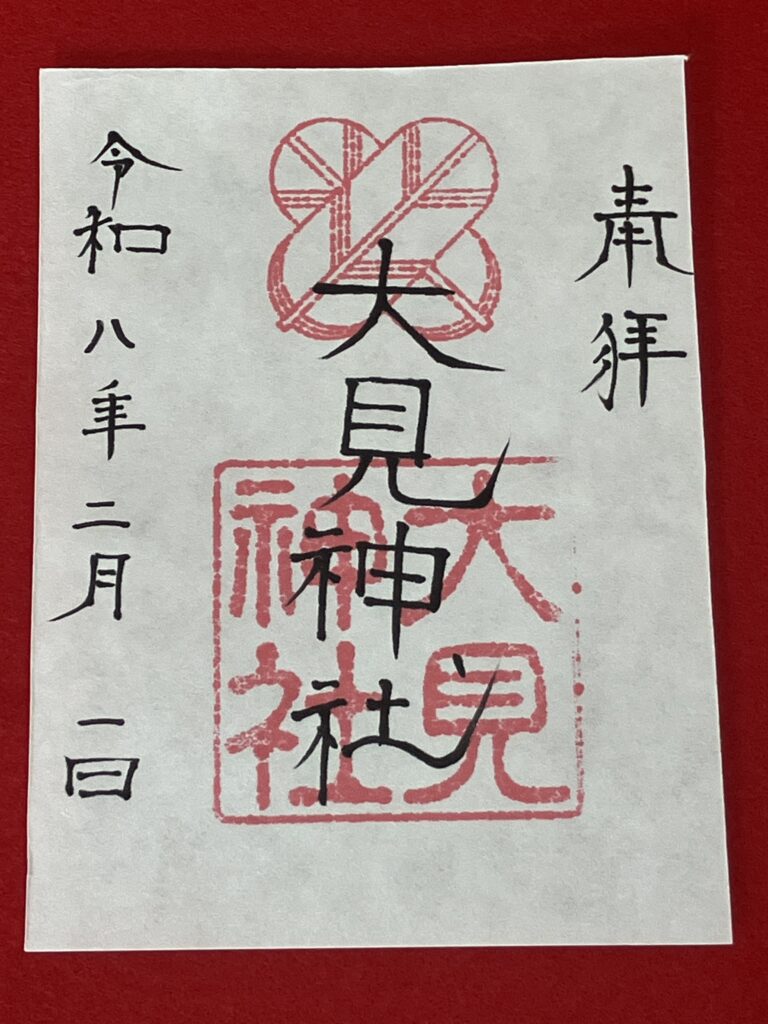 奉拝
大見神社
大見神社
令和八年二月一日